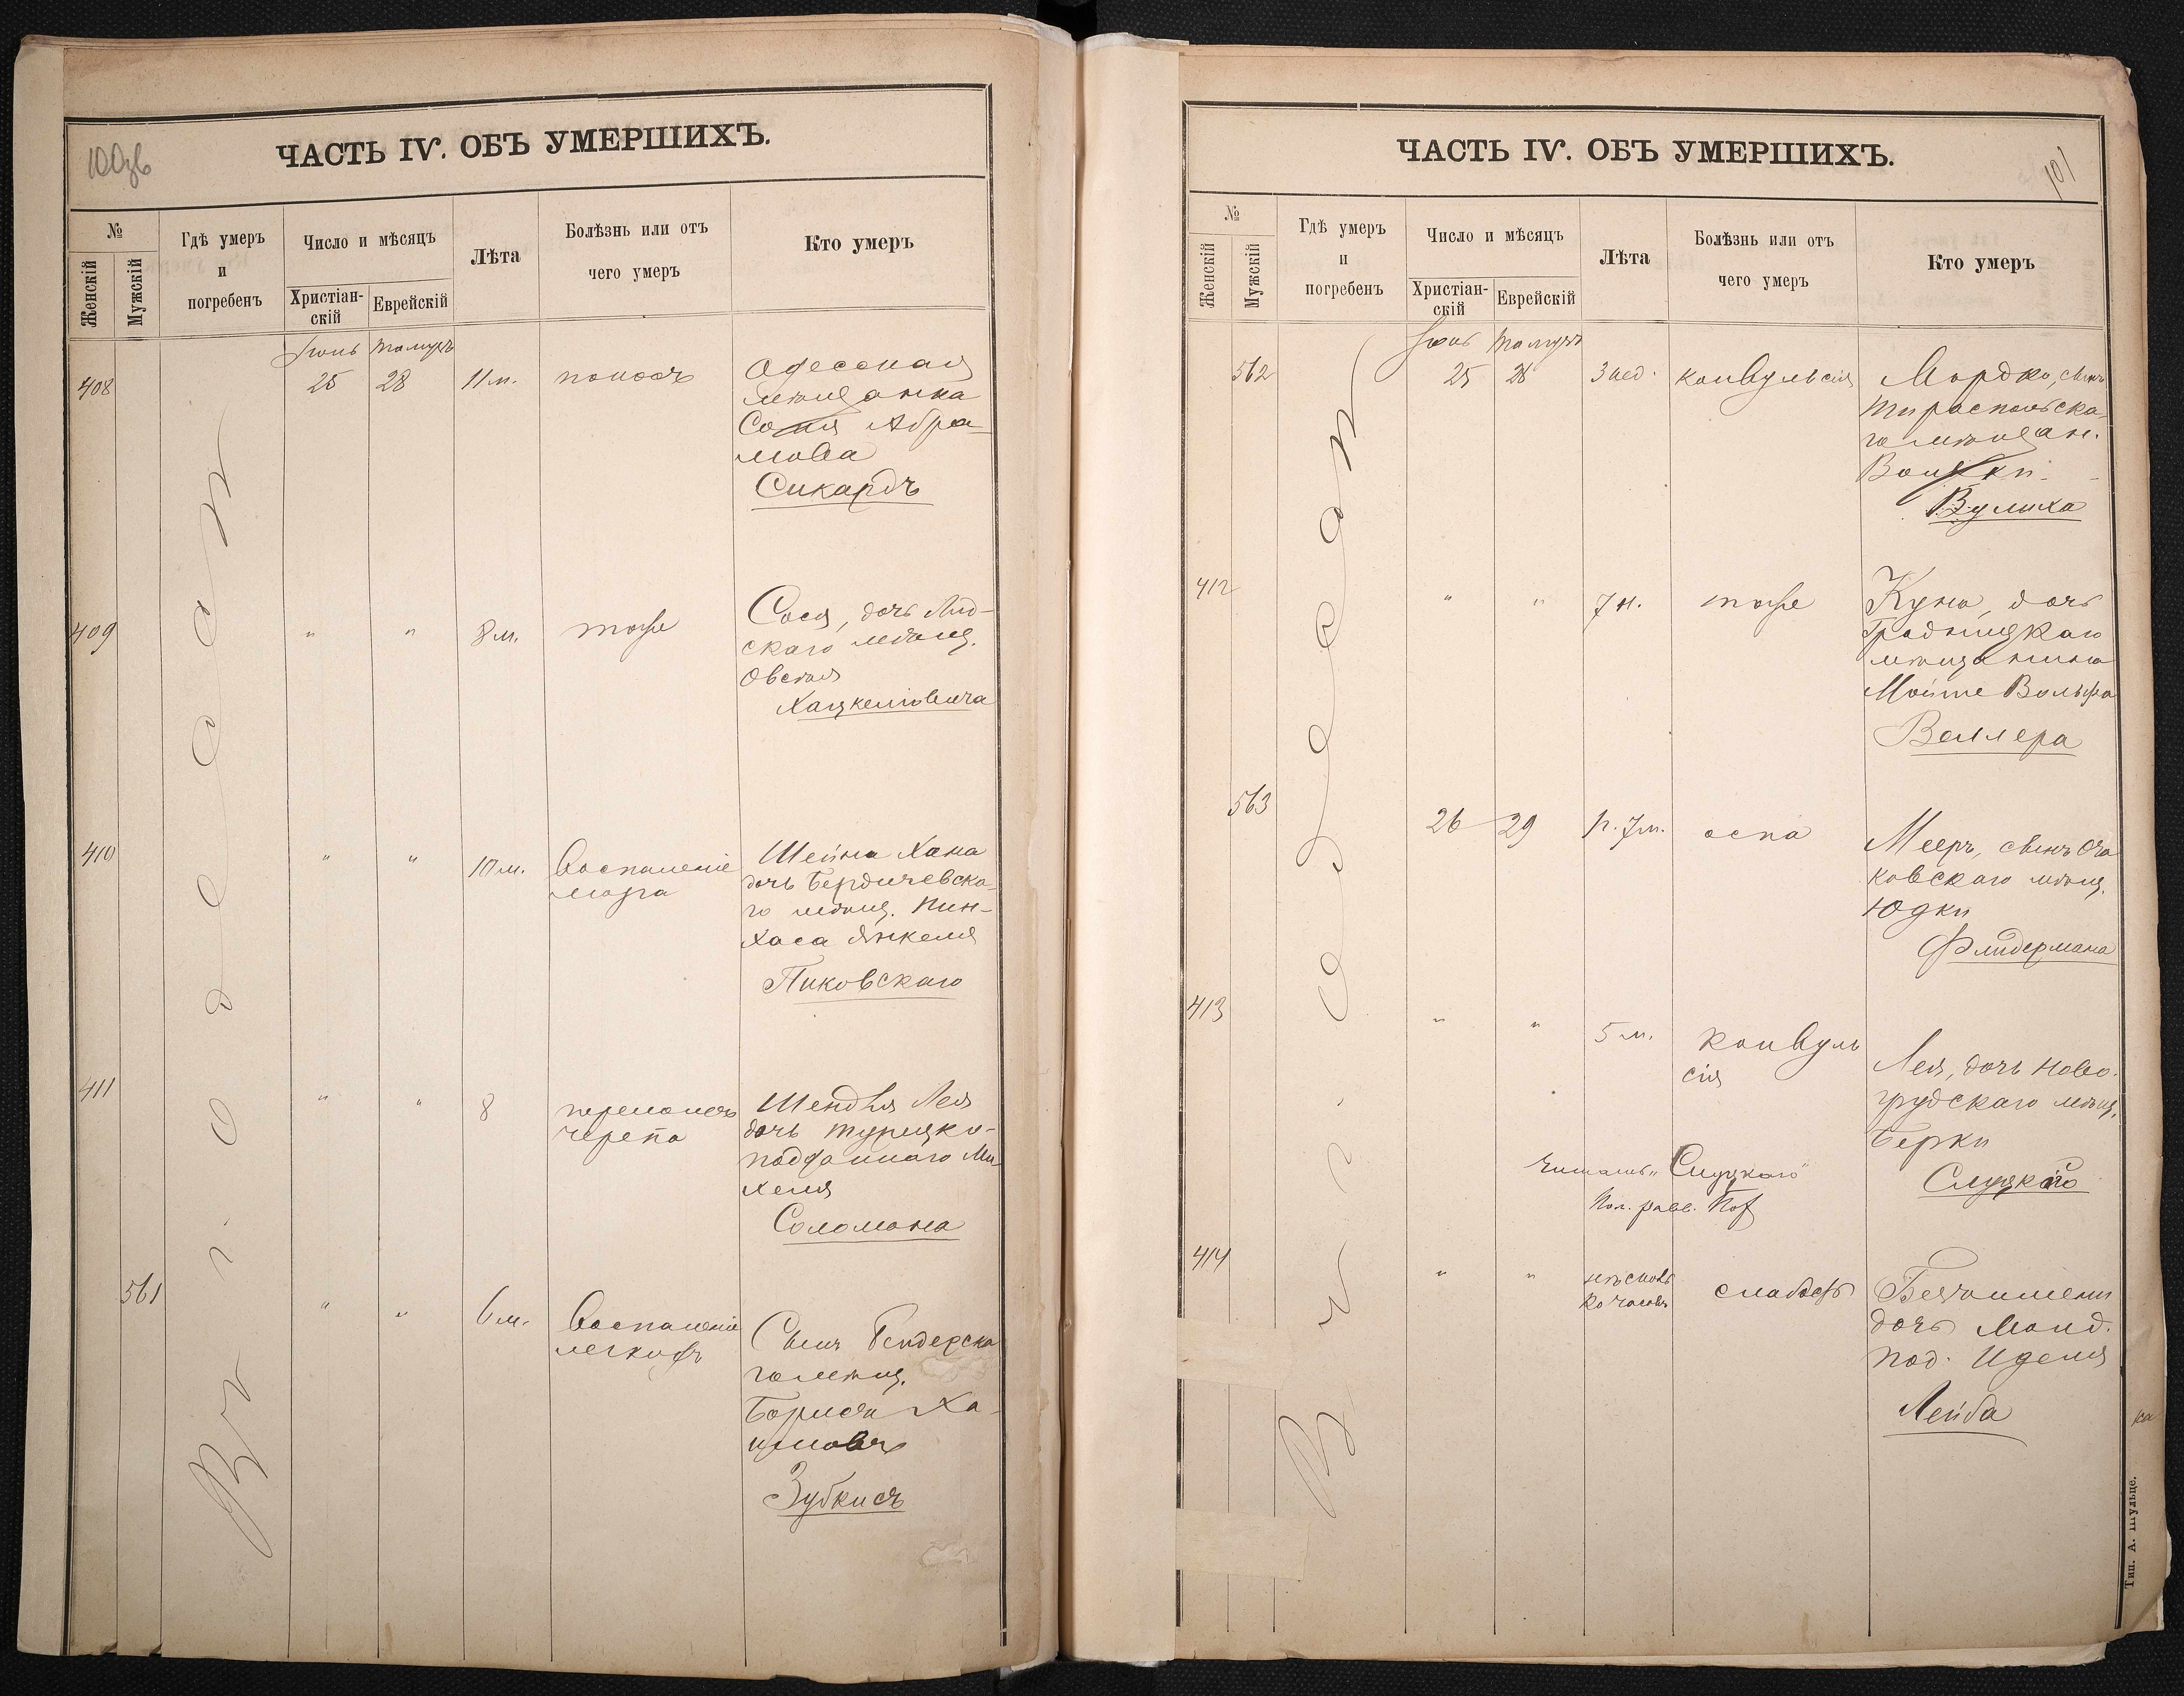 100зв
ЧАСТЬ IV. ОБЪ УМЕРШИХЪ.
№
Женскій
Мужскій
Гдѣ умеръ
и
погребенъ
Число и мѣсяцъ
Христіан-
скій
Еврейскій
Лѣта
Болѣзнь или отъ
чего умеръ
Кто умеръ
Въ г. Одессѣ
Іюнь Тамузъ
408
25 28 11 м. поносъ
Одесская
мѣщанка
Соня Абра-
мова
Сикардъ
409
" " 8 м. тоже
Сося, дочь Лид-
скаго мѣщ.
Овсѣя
Хацкелевича
410
" " 10 м. воспаленіе
мозга
Шейна Хана
дочь Бердичевска-
го мѣщ. Пин-
хаса Янкеля
Пиковскаго
411
" " 8 переломъ
черепа
Шендля Лея
дочь турецко-
подданнаго Ми-
хеля
Соломона
561
" " 6 м. воспаленіе
легкихъ
Сынъ Бендерска
го мѣщ.
Бориса Ха-
имовъ
Зубкисъ
101
ЧАСТЬ IV. ОБЪ УМЕРШИХЪ.
№
Женскій
Мужскій
Гдѣ умеръ
и
погребенъ
Число и мѣсяцъ
Христіан-
скій
Еврейскій
Лѣта
Болѣзнь или отъ
чего умеръ
Кто умеръ
Въ г. Одессѣ
Іюнь Тамузъ
562
25 28 3 нед. конвульсія
Мордко, сынъ
Тираспольска
го мѣщан.
Вулиха
412
" " 7 м. тоже
Куна, дочь
Гродницкаго
мѣщанина
Мойше Вольфа
Веллера
563
26 29 1 г. 7 м. оспа
Мееръ, сынъ Оча
ковскаго мѣщ.
Юдки
Флидермана
413
" " 5 м. конвуль
сія
Лея, дочь Ново-
грудскаго мѣщ.
Берки
Слуцкаго
Читать „Слуцкаго"
414
" " нѣсколь
ко часовъ слабость
Безъ имени
дочь Молд.
под. Иделя
Лейба
Тип. А. Шульце.